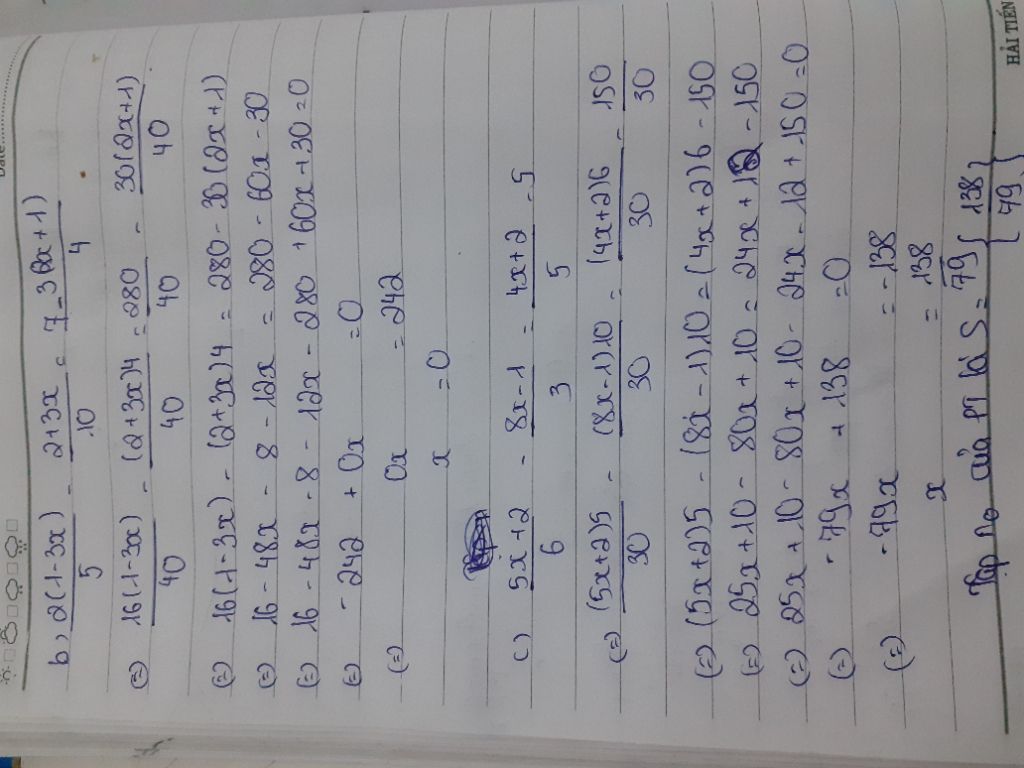 Date
b, 2(1-3x)/5 - 2+3x/10 = 7 - 3(2x+1)/4
(=) 16(1-3x)/40 - (2+3x)4/40 = 280/40 - 30(2x+1)/40
(=) 16(1-3x) - (2+3x)4 = 280 - 30(2x+1)
(=) 16 - 48x - 8 - 12x = 280 - 60x - 30
(=) 16 - 48x - 8 - 12x - 280 + 60x + 30 = 0
(=) - 242 + 0x = 0
(=) 0x = 242
x = 0
c) 5x+2/6 - 8x-1/3 = 4x+2/5 - 5
(=) (5x+2)5/30 - (8x-1)10/30 = (4x+2)6/30 - 150/30
(=) (5x+2)5 - (8x-1)10 = (4x+2)6 - 150
(=) 25x+10 - 80x+10 = 24x+12 - 150
(=) 25x+10 - 80x+10 - 24x - 12 + 150 = 0
(=) - 79x + 138 = 0
(=) - 79x = - 138
x = 138/79
Tập no của PT là S = {138/79}
HẢI TIẾN